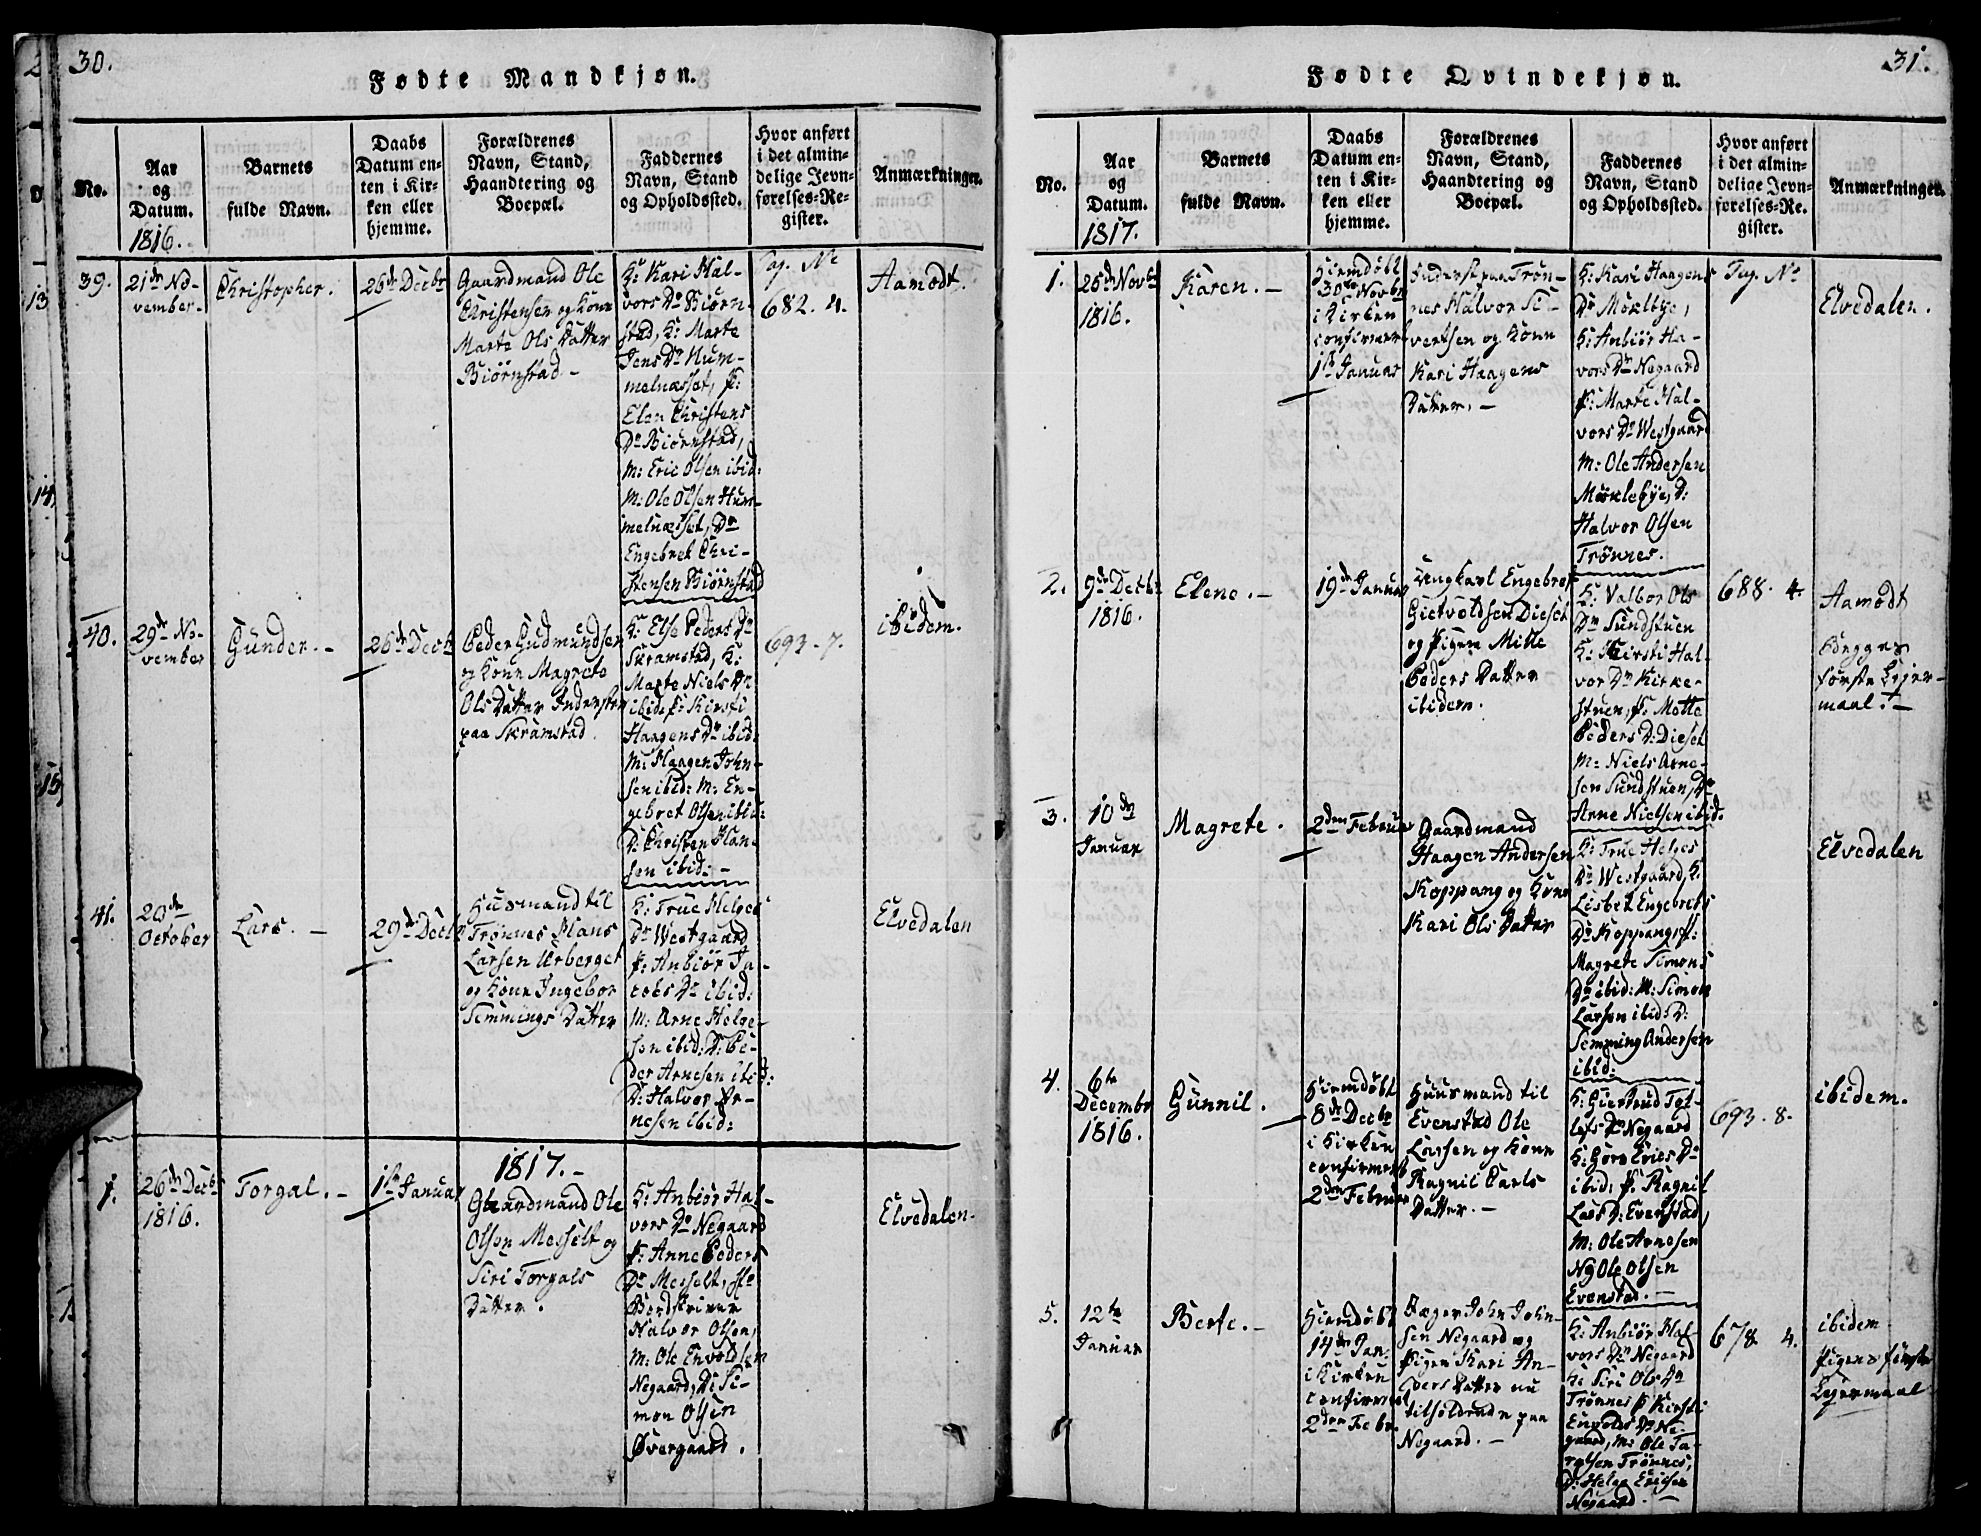 30.
Fødte Mandkjøn.
No.
Aar
og
Datum.
1816.
Barnets
fulde Navn.
Daabs
Datum en-
ten i Kir-
ken eller
hjemme.
Forældrenes
Navn, Stand,
Haandtering og
Boepæl.
Faddernes
Navn, Stand
og Opholdssted.
Hvor anført
i det almin-
delige Jevn-
førelses-Re-
gister.
Anmærkninger.
39.
21de No-
vember.
Christopher.
26de Decbr
Gaardmand Ole
Christensen og Kone
Marte Ols Datter
Biørnstad -
K: Kari Hal-
vors Dr Biørn-
stad, K: Marte
Jens Dr Hum-
melnæsset, P:
Elen Christens
Dr Biørnstad,
M: Eric Olsen ibid:
M: Ole Olsen Hum-
melnæsset, Dr
Engebret Chri-
stensen Biørnstad
Pag. No
682. 4.
Aamodt.
40.
29de No-
vember
Gunder. -
26de Decbr
Peder Gudmundsen
og Kone Magrete
Ols Datter Inderster
paa Skramstad.
K: Else Peders Dr
Skramstad, K:
Marte Niels Dr
ibid: P: Kirsti
Haagens Dr ibid:
M: Haagen John-
sen ibid: M: En-
gebret Olsen ibid:
D: Christen Han-
sen ibid: -
693. 7.
ibidem.
41.
20de
October
Lars. -
29de Decbr
Huusmand til
Trønnes Hans
Larsen Urberget
og Kone Ingebor
Semmings Datter
K: True Helges
Dr Westgaard
P: Anbiør Ja-
cobs Dr ibid:
M: Arne Helge-
sen ibid: D: Pe-
der Arnesen ibid:
D: Halvor Ar-
nesen ibid:
Elvedalen
1817. -
1.
26de Decbr
1816.
Torgal. -
1ste Januar
Gaardmand Ole
Olsen Messelt og
Siri Torgals
Datter.
K: Anbiør Hal-
vors Dr Negaard
P: Anne Peders
Dr Messelt,
Bordskriver
Halvor Olsen,
M: Ole Envoldsen
Negaard, D: Si-
mon Olsen
Øvergaard.
Elvedalen.
31.
Fødte Qvindekjøn.
No.
Aar
og
Datum.
1817.
Barnets
fulde Navn.
Daabs
Datum en-
ten i Kir-
ken eller
hjemme.
Forældrenes
Navn, Stand,
Haandtering og
Boepæl.
Faddernes
Navn, Stand
og Opholdssted.
Hvor anført
i det almin-
delige Jevn-
førelses-Re-
gister.
Anmærkninger.
1.
25de Novbr
1816.
Karen. -
Hiemdøbt
30te Novbr
i Kirken
confirmert
1ste Januar
Inderst paa Trøn-
nes Halvor Si-
vertsen og Kone
Kari Haagens
Datter. -
K: Kari Haagens
Dr Møklebye,
K: Anbiør Ha-
vors Dr Negaard
P: Marte Hal-
vors Dr Westgaard
M: Ole Andersen
Møklebye, D:
Halvor Olsen
Trønnes.
Pag. No
Elvedalen.
2.
9de Decbr
1816.
Elene. -
19de Januar
Ungkarl Engebret
Gietvoldsen Dieset
og Pigen Mitte
Peders Datter
ibidem.
K: Valbor Ols
Dr Sundstuen
K: Kirsti Hal-
vor Dr Kirke-
stuen, P: Mette
Peders D: Dieset
M: Niels Arne-
sen Sundstuen, Dr
Arne Nielsen ibid.
688. 4.
Aamodt
Begges
første Leier-
maal. -
3.
10de
Januar
Magrete.
2den Februar
Gaardmand
Haagen Andersen
Koppang og Kone
Kari Ols Datter
K: True Helges
Dr Westgaard, K:
Lisbet Engebrets
Dr Koppang, P:
Magrete Simons
Dr ibid: M: Simon
Larsen ibid: D:
Semming Andersen
ibid:
Elvedalen
4.
6te
Decembr
1816.
Gunnil.
Hiemdøbt
8de Decbr
i Kirken
confirmert
2den Februar
Huusmand til
Evenstad Ole
Larsen og Kone
Ragnil Carls
Datter. -
K: Giertrud Tol-
lefs Dr Negaard
K: Goro Erics Dr
ibid: P: Ragnil
Lars D: Evenstad,
M: Ole Arnesen
Ng Ole Olsen
Evenstad. -
693. 8.
ibidem.
5.
12te
Januar
Berte. -
Hiemdøbt
14de Jan.
i Kirken
confirmert
2den Febr.
Jæger John John-
sen Negaard og
Pigen Kari An-
ders Datter nu
tilholdende paa
Negaard. -
K: Anbiør Hal-
vors Dr Negaard
K: Siri Ols Dr
Trønnes P: Kirsti
Envolds Dr Ne-
gaard, M: Ole Ta-
ralsen Trønnes,
D: Helge Ericsen
Negaard. -
678 4.
ibidem
Pigens første
Leiermaal